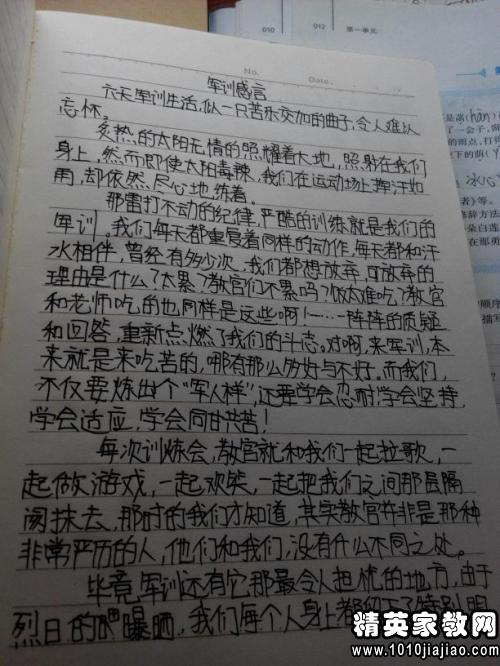 010
012 第一单元
No.
Date
军训感言
六天军训生活,似一只苦乐交加的曲子,令人难以
忘怀。
炙热的太阳无情的照耀着大地,照射在我们
身上,然而即使太阳毒辣,我们在运动场上挥汗如
雨,却依然尽心地练着。
那雷打不动的纪律,严酷的训练就是我们的
军训。我们每天都重复着同样的动作,每天都和汗
水相伴,曾经有多少次,我们都想放弃,可放弃的
理由是什么?太累?教官们不累吗?饭太难吃?教官
和老师吃的也同样是这些啊!……一阵阵的质疑
和回答,重新点燃了我们的斗志。对啊,来军训,本
来就是来吃苦的,哪有那么多好与不好,而我们,
不仅要炼出个“军人样”,还要学会忍耐,学会坚持,
学会适应,学会同甘共苦!
每次训炼会,教官就和我们一起拉歌,一
起做游戏,一起欢笑,一起把我们之间那层隔
阂抹去,那时的我们才知道,其实教官并非是那种
非常严厉的人,他们和我们,没有什么不同之处。
毕竟军训还有它那最令人担忧的地方,由于
烈日的曝晒,我们每个人身上都
精英家教网
www.1010jiajiao.com